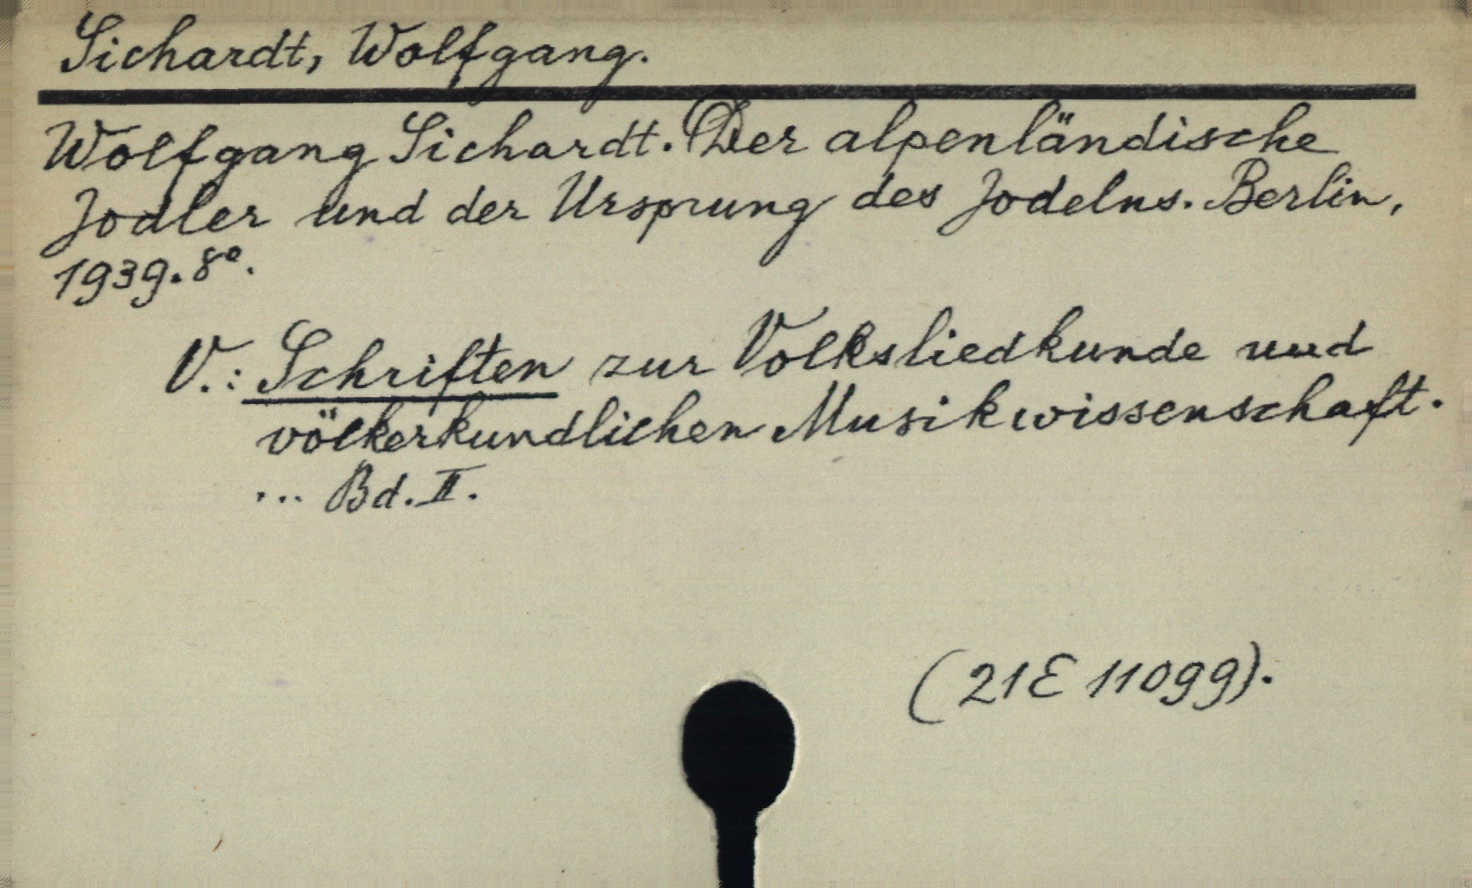 Sichardt, Wolfgang.
Wolfgang Sichardt. Der alpenländische
Jodler und der Ursprung des Jodelns. Berlin,
1939. 8°.
V.: Schriften zur Volksliedkunde und
völkerkundlichen Musikwissenschaft.
... Bd. II.
(21E 11099).